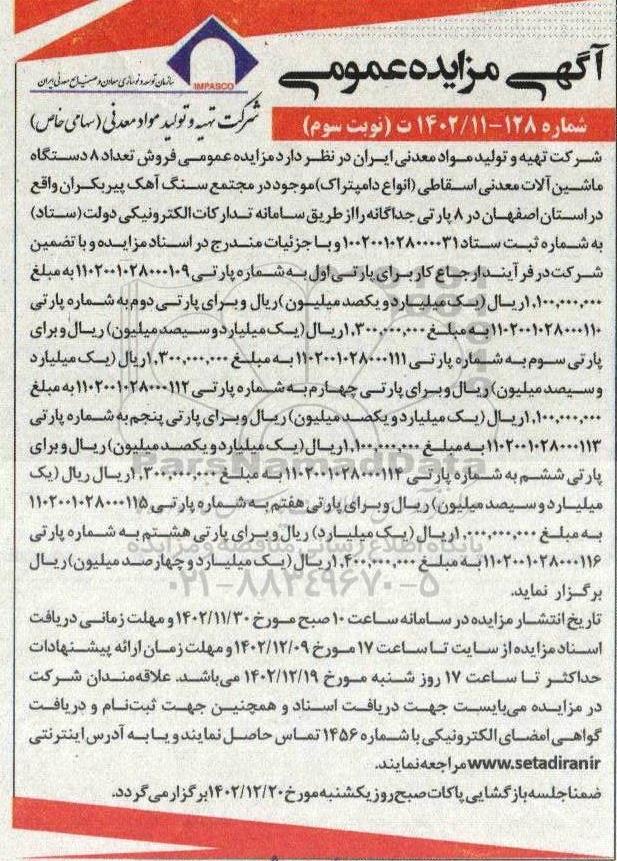 آگهی مزایده عمومی
سازمان توسعه و نوسازی معادن و صنایع معدنی ایران
IMPASCO
شرکت تهیه و تولید مواد معدنی (سهامی خاص)
شماره ۱۲۸-۱۴۰۲/۱۱ ت (نوبت سوم)
شرکت تهیه و تولید مواد معدنی ایران در نظر دارد مزایده عمومی فروش تعداد ۸ دستگاه
ماشین آلات معدنی اسقاطی (انواع دامپتراک) موجود در مجتمع سنگ آهک پیربکران واقع
در استان اصفهان در ۸ پارتی جداگانه را از طریق سامانه تدارکات الکترونیکی دولت (ستاد)
به شماره ثبت ستاد ۱۰۰۲۰۰۱۰۲۸۰۰۰۰۳۱ و با جزئیات مندرج در اسناد مزایده و با تضمین
شرکت در فرآیند ارجاع کار برای پارتی اول به شماره پارتی ۱۱۰۲۰۰۱۰۲۸۰۰۰۱۰۹ به مبلغ
۱,۱۰۰,۰۰۰,۰۰۰ ریال (یک میلیارد و یکصد میلیون) ریال و برای پارتی دوم به شماره پارتی
۱۱۰۲۰۰۱۰۲۸۰۰۰۱۱۰ به مبلغ ۱,۳۰۰,۰۰۰,۰۰۰ ریال (یک میلیارد و سیصد میلیون) ریال و برای
پارتی سوم به شماره پارتی ۱۱۰۲۰۰۱۰۲۸۰۰۰۱۱۱ به مبلغ ۱,۳۰۰,۰۰۰,۰۰۰ ریال (یک میلیارد
و سیصد میلیون) ریال و برای پارتی چهارم به شماره پارتی ۱۱۰۲۰۰۱۰۲۸۰۰۰۱۱۲ به مبلغ
۱,۱۰۰,۰۰۰,۰۰۰ ریال (یک میلیارد و یکصد میلیون) ریال و برای پارتی پنجم به شماره پارتی
۱۱۰۲۰۰۱۰۲۸۰۰۰۱۱۳ به مبلغ ۱,۱۰۰,۰۰۰,۰۰۰ ریال (یک میلیارد و یکصد میلیون) ریال و برای
پارتی ششم به شماره پارتی ۱۱۰۲۰۰۱۰۲۸۰۰۰۱۱۴ به مبلغ ۱,۳۰۰,۰۰۰,۰۰۰ ریال ریال (یک
میلیارد و سیصد میلیون) ریال و برای پارتی هفتم به شماره پارتی ۱۱۰۲۰۰۱۰۲۸۰۰۰۱۱۵
به مبلغ ۱,۰۰۰,۰۰۰,۰۰۰ ریال (یک میلیارد) ریال و برای پارتی هشتم به شماره پارتی
۱۱۰۲۰۰۱۰۲۸۰۰۰۱۱۶ به مبلغ ۱,۴۰۰,۰۰۰,۰۰۰ ریال (یک میلیارد و چهارصد میلیون) ریال
برگزار نماید.
تاریخ انتشار مزایده در سامانه ساعت ۱۰ صبح مورخ ۱۴۰۲/۱۱/۳۰ و مهلت زمانی دریافت
اسناد مزایده از سایت تا ساعت ۱۷ مورخ ۱۴۰۲/۱۲/۰۹ و مهلت زمان ارائه پیشنهادات
حداکثر تا ساعت ۱۷ روز شنبه مورخ ۱۴۰۲/۱۲/۱۹ می‌باشد. علاقه‌مندان شرکت
در مزایده می‌بایست جهت دریافت اسناد و همچنین جهت ثبت‌نام و دریافت
گواهی امضای الکترونیکی با شماره ۱۴۵۶ تماس حاصل نمایند و یا به آدرس اینترنتی
www.setadiranir مراجعه نمایند.
ضمنا جلسه بازگشایی پاکات صبح روز یکشنبه مورخ ۱۴۰۲/۱۲/۲۰ برگزار می گردد.
ParsNamadData
پایگاه اطلاع رسانی مناقصه و مزایده
۰۲۱-۸۸۳۴۹۶۷۰-۵